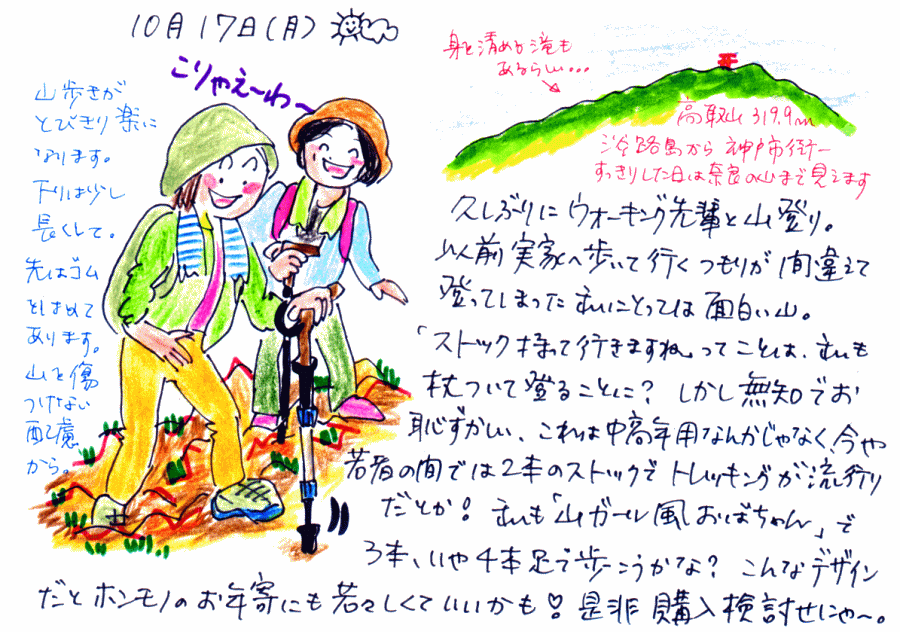 10月17日(月)
こりゃえ〜わ〜
山歩きが
とびきり楽に
なります。
下りは少し
長くして。
先はゴム
とじめて
あります。
山を傷
つけない
配慮
から。
身を清める滝も
あるらしい...
高取山 319.9m
淡路島から 神戸市街ー
すっきりした日は奈良の山まで見えます
久しぶりにウォーキング先輩と山登り。
以前実家へ歩いて行くつもりが間違えて
登ってしまった私にとっては面白い山。
「ストック持って行きますね」ってことは、私も
杖ついて登ることに? しかし無知でお
恥ずかしい、これは中高年用なんかじゃなく、今や
若者の間では2本のストックでトレッキングが流行り
だとか! 私も「山ガール風おばちゃん」で
3本、いや4本足で歩こうかな? こんなデザイン
だとホンモノのお年寄にも若々しくていいかも♡ 是非購入検討せにゃ〜。